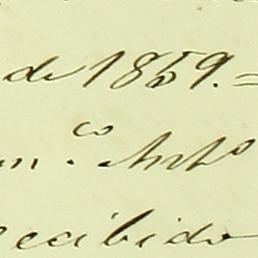 de 1859.=
m.co Anto
recibido